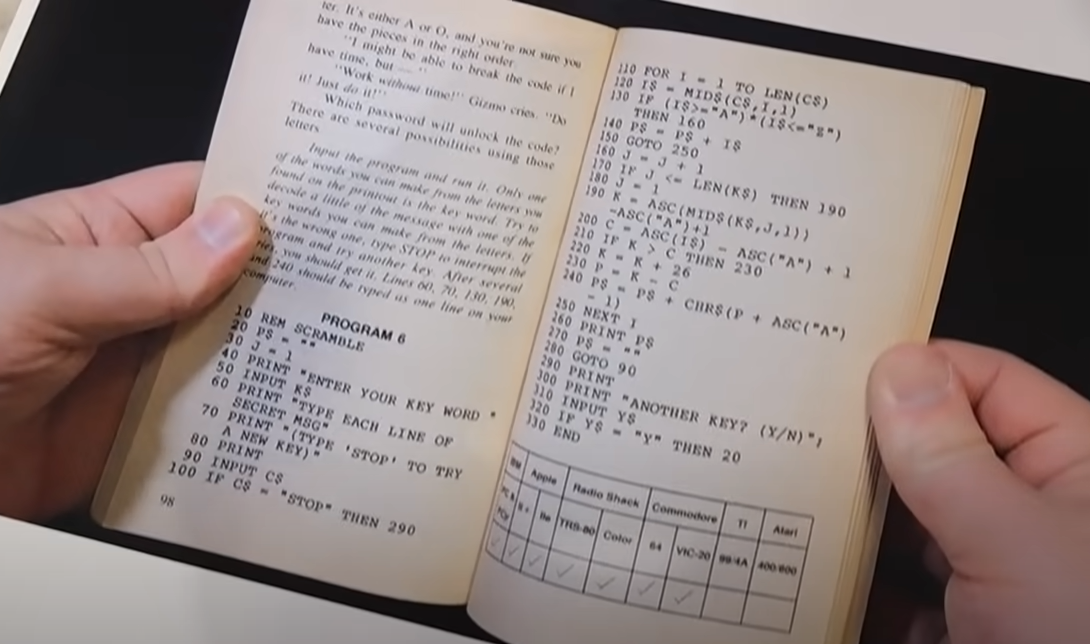 ter. It's either A or O, and you're not sure you
have the pieces in the right order.
"I might be able to break the code if I
have time, but — "
"Work without time!" Gizmo cries. "Do
it! Just do it!"
Which password will unlock the code?
There are several possibilities using those
letters.
Input the program and run it. Only one
of the words you can make from the letters you
found on the printout is the key word. Try to
decode a little of the message with one of the
key words you can make from the letters. If
it's the wrong one, type STOP to interrupt the
program and try another key. After several
tries, you should get it. Lines 60, 70, 130, 190,
and 240 should be typed as one line on your
computer.
PROGRAM 6
10 REM SCRAMBLE
20 P$ = ""
30 J = 1
40 PRINT "ENTER YOUR KEY WORD "
50 INPUT K$
60 PRINT "TYPE EACH LINE OF
SECRET MSG"
70 PRINT "(TYPE 'STOP' TO TRY
A NEW KEY)"
80 PRINT
90 INPUT C$
100 IF C$ = "STOP" THEN 290
98
110 FOR I = 1 TO LEN(C$)
120 I$ = MID$(C$,I,1)
130 IF (I$>="A")*(I$<="Z")
THEN 160
140 P$ = P$ + I$
150 GOTO 250
160 J = J + 1
170 IF J <= LEN(K$) THEN 190
180 J = 1
190 K = ASC(MID$(K$,J,1))
-ASC("A")+1
200 C = ASC(I$) - ASC("A") + 1
210 IF K > C THEN 230
220 K = K + 26
230 P = K - C
240 P$ = P$ + CHR$(P + ASC("A")
- 1)
250 NEXT I
260 PRINT P$
270 P$ = ""
280 GOTO 90
290 PRINT
300 PRINT "ANOTHER KEY? (Y/N)";
310 INPUT Y$
320 IF Y$ = "Y" THEN 20
330 END
Apple Radio Shack Commodore TI Atari
II+ IIe TRS-80 Color 64 VIC-20 99/4A 400/800